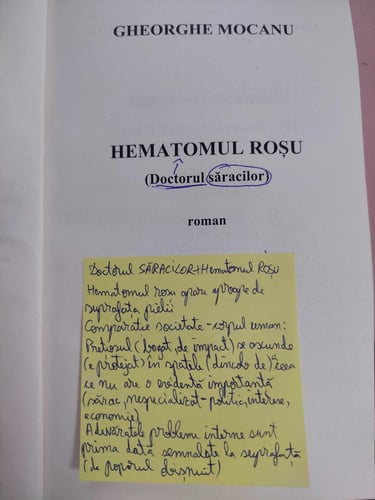 GHEORGHE MOCANU
HEMATOMUL ROȘU
(Doctorul săracilor)
roman
Doctorul SĂRACILOR+Hematomul ROȘU
Hematomul rosu apare aproape de
suprafața pielii
Comparatie societate-corpul uman:
Pretiosul (bogat, de impact) se ascunde
(e protejat) în spatele (dincolo de) a ceea
ce nu are o evidentă importantă
(sărac, nespecializat-politic, interese,
economie)
Adevăratele probleme interne sunt
prima dată semnalate la suprafață
(de poporul obișnuit)